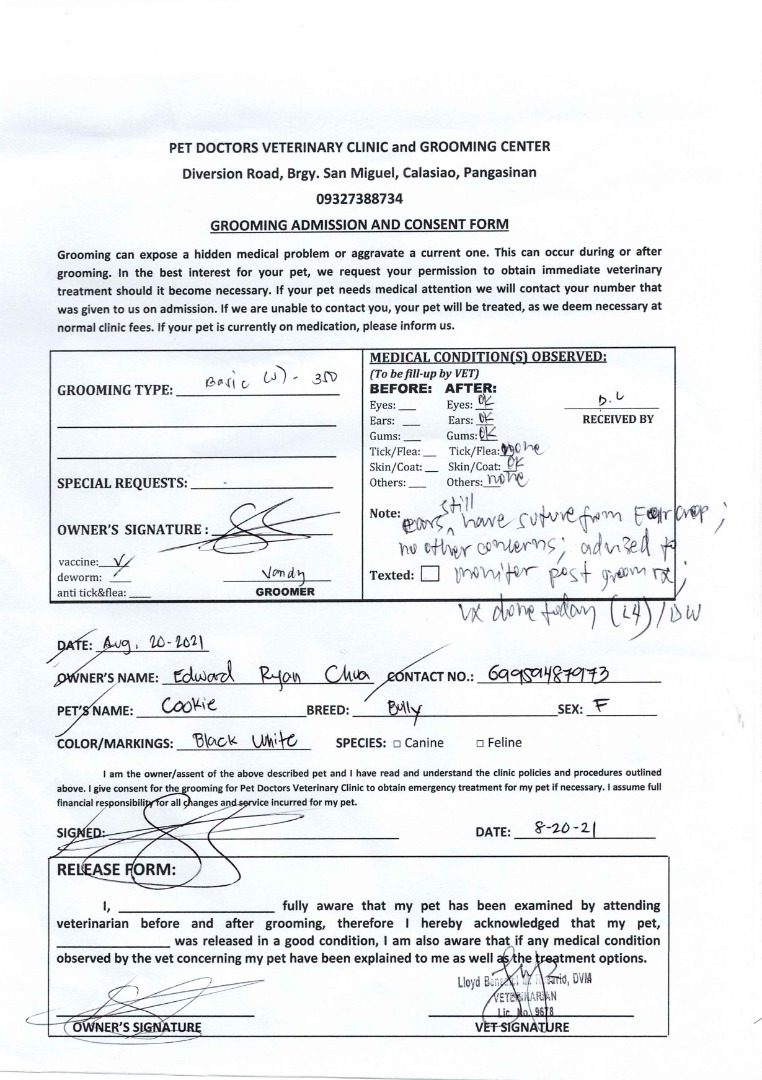 PET DOCTORS VETERINARY CLINIC and GROOMING CENTER
Diversion Road, Brgy. San Miguel, Calasiao, Pangasinan
09327388734
GROOMING ADMISSION AND CONSENT FORM
Grooming can expose a hidden medical problem or aggravate a current one. This can occur during or after
grooming. In the best interest for your pet, we request your permission to obtain immediate veterinary
treatment should it become necessary. If your pet needs medical attention we will contact your number that
was given to us on admission. If we are unable to contact you, your pet will be treated, as we deem necessary at
normal clinic fees. If your pet is currently on medication, please inform us.
GROOMING TYPE: Basic (s) - 350
SPECIAL REQUESTS: -
OWNER'S SIGNATURE :
vaccine: ✓
deworm: /
anti tick&flea:
Vandy
GROOMER
MEDICAL CONDITION(S) OBSERVED:
(To be fill-up by VET)
BEFORE: AFTER:
Eyes: Eyes: OK
Ears: Ears: OK
Gums: Gums: OK
Tick/Flea: Tick/Flea: none
Skin/Coat: Skin/Coat: OK
Others: Others: none
RECEIVED BY
Note: ears still have suture from Ear crop;
no other concerns; advised to
Texted: monitor post groom rx;
vx done today (L4)/DW
DATE: Aug. 20-2021
OWNER'S NAME: Edward Ryan Chua CONTACT NO.:
PET'S NAME: Cookie BREED: Bully SEX: F
COLOR/MARKINGS: Black White SPECIES: □ Canine □ Feline
I am the owner/assent of the above described pet and I have read and understand the clinic policies and procedures outlined
above. I give consent for the grooming for Pet Doctors Veterinary Clinic to obtain emergency treatment for my pet if necessary. I assume full
financial responsibility for all changes and service incurred for my pet.
SIGNED: DATE: 8-20-21
RELEASE FORM:
I, fully aware that my pet has been examined by attending
veterinarian before and after grooming, therefore I hereby acknowledged that my pet,
was released in a good condition, I am also aware that if any medical condition
observed by the vet concerning my pet have been explained to me as well as the treatment options.
Lloyd DVM
VETERINARIAN
Lic. No. 9678
OWNER'S SIGNATURE VET SIGNATURE